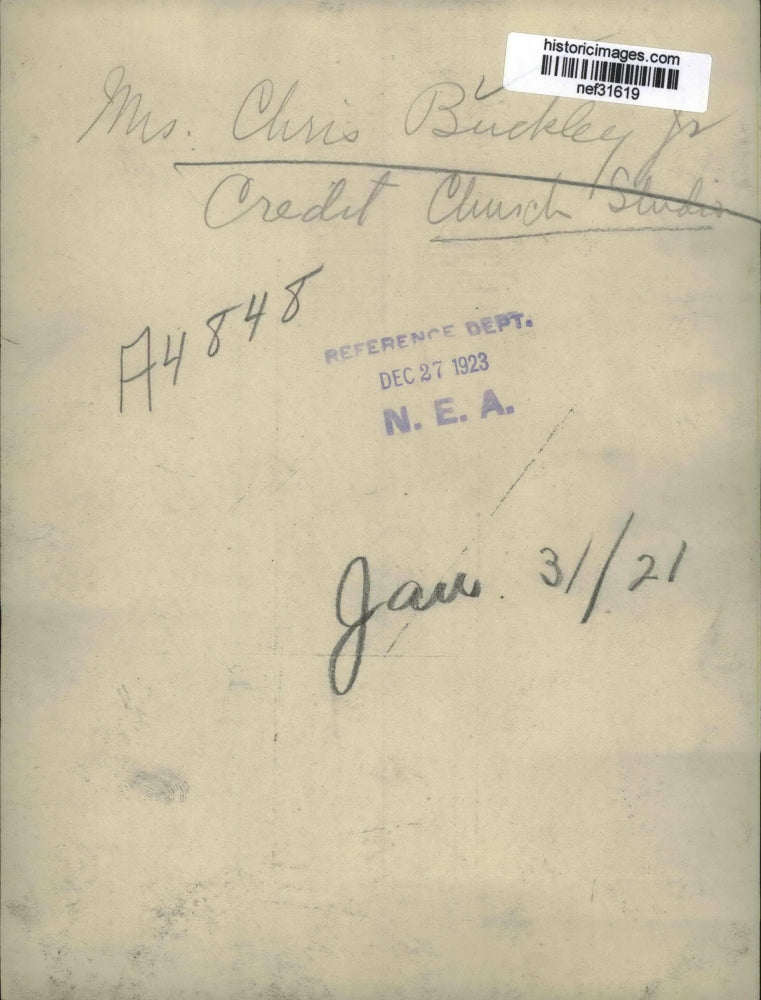 historicimages.com
nef31619
Mrs. Chris Buckley Jr
Credit Church Studio
A4848
REFERENCE DEPT.
DEC 27 1923
N. E. A.
Jan. 31/21